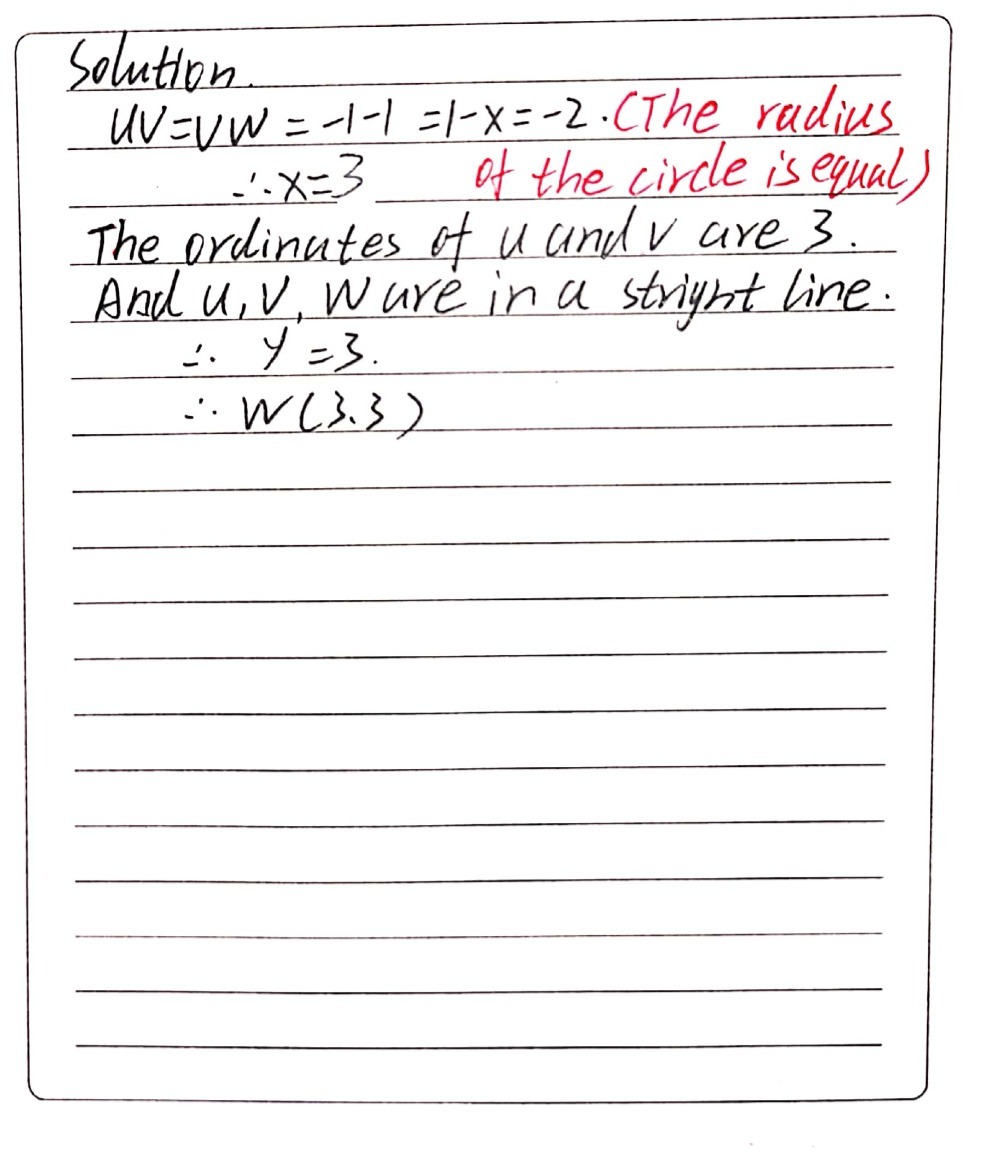 Solution.
UV=VW=-1-1=1-x=-2.(The radius
∴x=3 of the circle is equal)
The ordinates of u and v are 3.
And u,v,w are in a stright line.
∴ y=3.
∴ W(3.3)